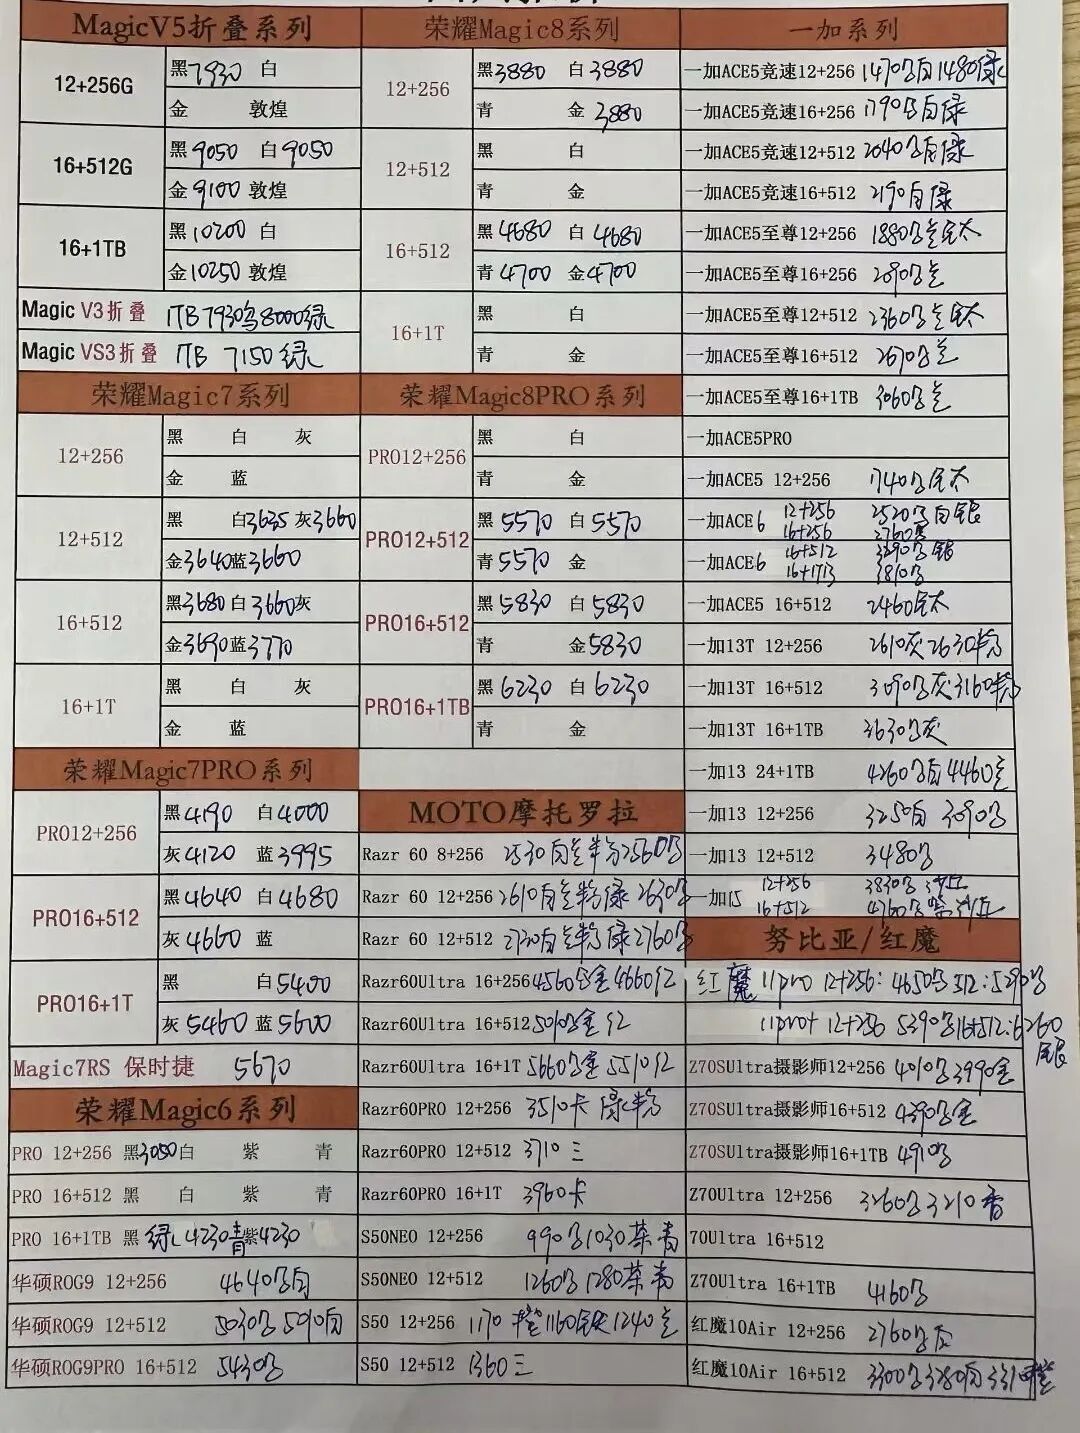 MagicV5折叠系列
12+256G
黑7930 白
金 敦煌
16+512G
黑9050 白9050
金9100 敦煌
16+1TB
黑10200 白
金10250 敦煌
Magic V3折叠 1TB 7930 8000绿
Magic VS3折叠 1TB 7150绿
荣耀Magic7系列
12+256
黑 白 灰
金 蓝
12+512
黑 白3635 灰3660
金3640 蓝3660
16+512
黑3680 白3660 灰
金3690 蓝3770
16+1T
黑 白 灰
金 蓝
荣耀Magic7PRO系列
PRO12+256
黑4190 白4000
灰4120 蓝3995
PRO16+512
黑4640 白4680
灰4660 蓝
PRO16+1T
黑 白5400
灰5460 蓝5600
Magic7RS 保时捷 5670
荣耀Magic6系列
PRO 12+256 黑3050 白 紫 青
PRO 16+512 黑 白 紫 青
PRO 16+1TB 黑 绿4230青 紫4230
华硕ROG9 12+256 4640 白
华硕ROG9 12+512 5030 5090白
华硕ROG9PRO 16+512 5430
荣耀Magic8系列
12+256
黑3880 白3880
青 金3880
12+512
黑 白
青 金
16+512
黑4680 白4680
青4700 金4700
16+1T
黑 白
青 金
荣耀Magic8PRO系列
PRO12+256
黑 白
青 金
PRO12+512
黑5570 白5570
青5570 金
PRO16+512
黑5830 白5830
青 金5830
PRO16+1TB
黑6230 白6230
青 金
MOTO摩托罗拉
Razr 60 8+256 2530白兰粉2560
Razr 60 12+256 2610白兰粉绿2630
Razr 60 12+512 2730白兰粉绿2760
Razr60Ultra 16+256 4560 金4660红
Razr60Ultra 16+512 5090 金红
Razr60Ultra 16+1T 5660 金5510红
Razr60PRO 12+256 3510卡 绿粉
Razr60PRO 12+512 3710三
Razr60PRO 16+1T 3960卡
S50NEO 12+256 990 1030茶青
S50NEO 12+512 1260 1280茶青
S50 12+256 1170 1160 1240兰
S50 12+512 1360三
一加系列
一加ACE5竞速12+256 1470 白1480绿
一加ACE5竞速16+256 1790 白绿
一加ACE5竞速12+512 2040 白绿
一加ACE5竞速16+512 2190白绿
一加ACE5至尊12+256 1880 兰钛
一加ACE5至尊16+256 2090 兰
一加ACE5至尊12+512 2360 兰钛
一加ACE5至尊16+512 2670 兰
一加ACE5至尊16+1TB 3060 兰
一加ACE5PRO
一加ACE5 12+256 1740 钛
一加ACE6 12+256 2520 白银
16+256 2760
一加ACE6 16+512 3290 银
16+1TB 3810
一加ACE5 16+512 2460钛
一加13T 12+256 2610灰2630粉
一加13T 16+512 3090 灰3160粉
一加13T 16+1TB 3630 灰
一加13 24+1TB 4260 白4460兰
一加13 12+256 3250白 3090
一加13 12+512 3480
一加15 12+256 3830 沙丘
16+512 4760 紫沙丘
努比亚/红魔
红魔 11pro 12+256: 4650 512:5290
11pro+ 12+256 5390 16+512:6260
银
Z70SUltra摄影师12+256 4010 3990金
Z70SUltra摄影师16+512 4390 金
Z70SUltra摄影师16+1TB 4910
Z70Ultra 12+256 3260 3210香
70Ultra 16+512
Z70Ultra 16+1TB 4160
红魔10Air 12+256 2760
红魔10Air 16+512 3300 3280白 3310橙